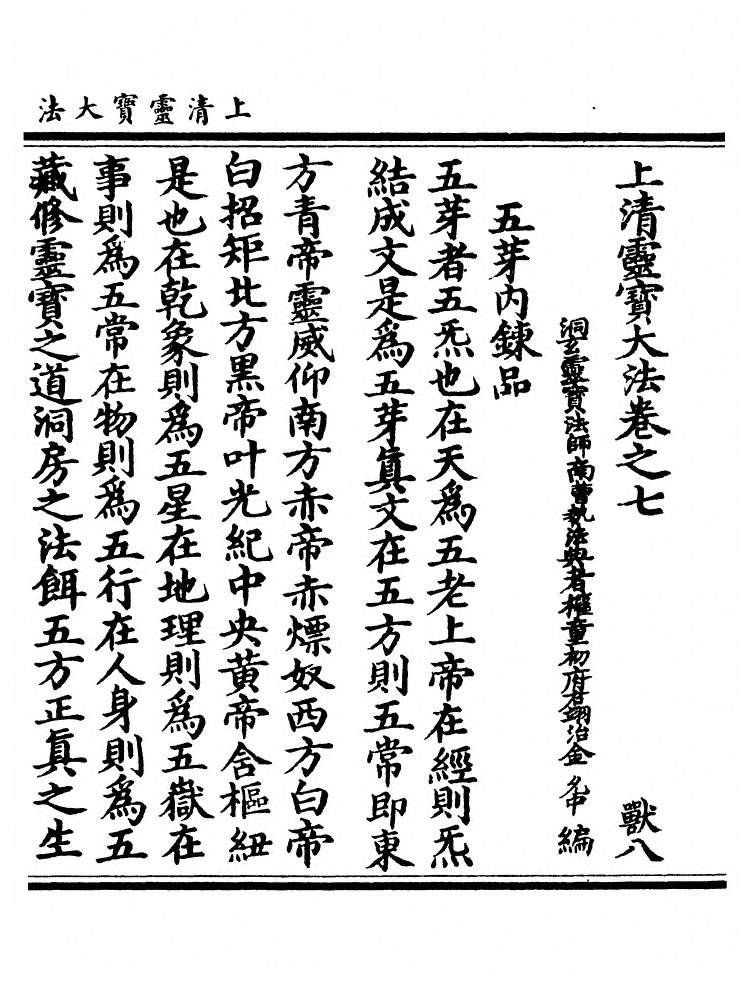 上清靈寶大法
上清靈寶大法卷之七 獸八
洞玄靈寶法師南曹執法典者權童初府右翊治金允中編
五芽內鍊品
五芽者五炁也在天爲五老上帝在經則炁
結成文是爲五芽眞文在五方則五常即東
方青帝靈威仰南方赤帝赤熛奴西方白帝
白招矩北方黑帝叶光紀中央黃帝含樞紐
是也在乾象則爲五星在地理則爲五嶽在
事則爲五常在物則爲五行在人身則爲五
藏修靈寶之道洞房之法餌五方正眞之生